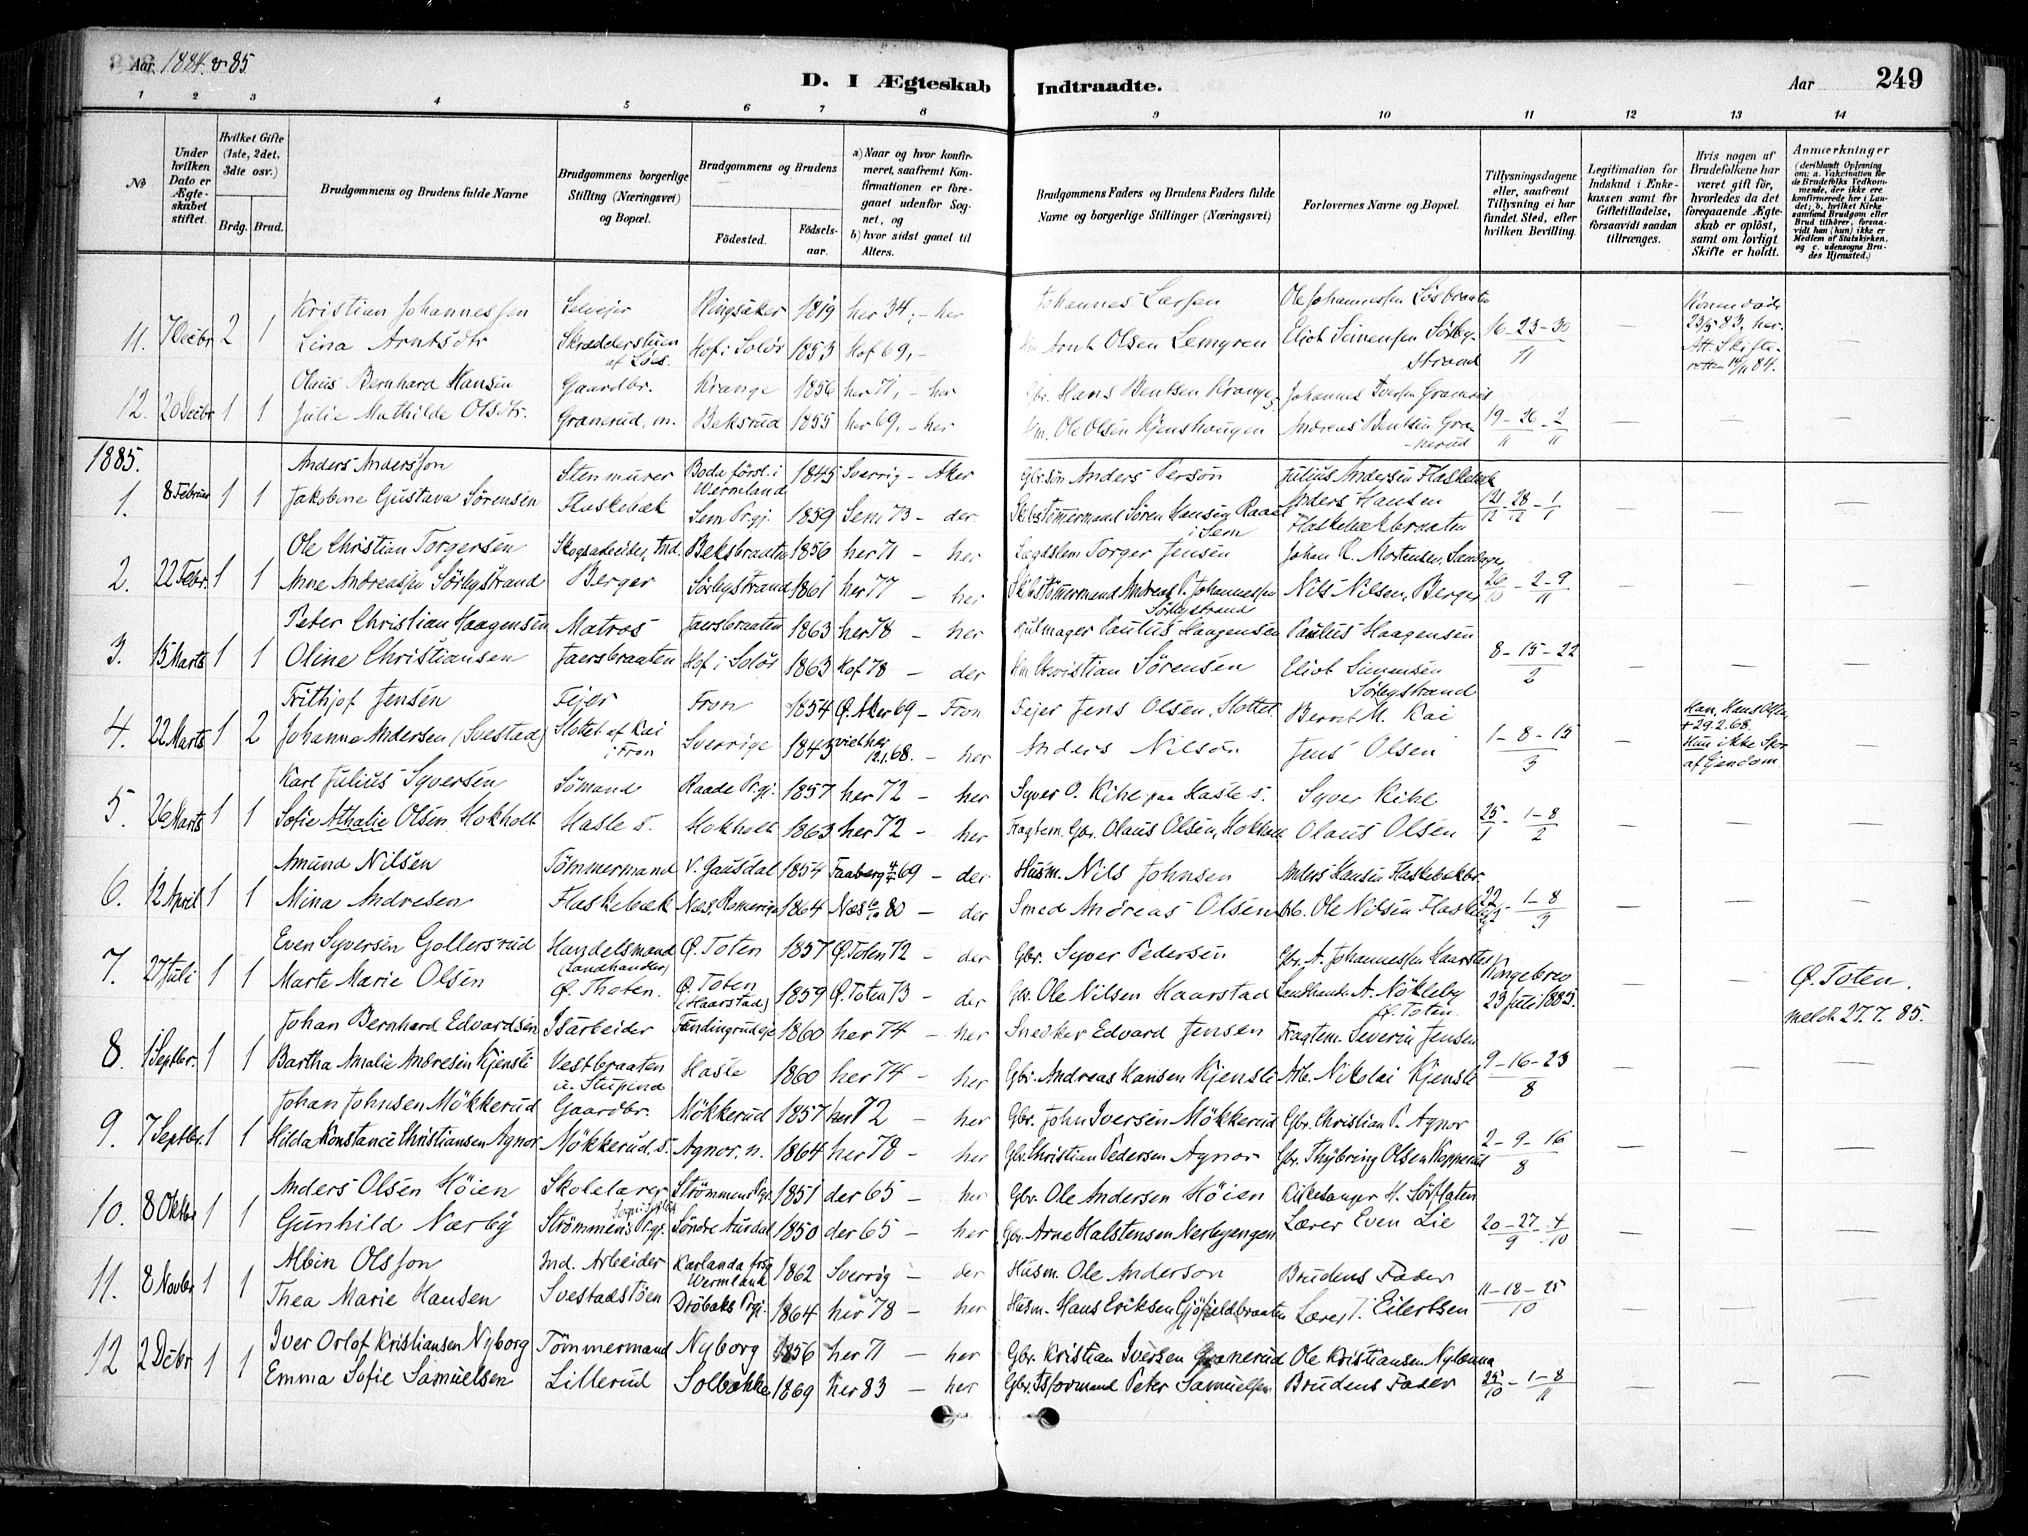 Aar 1884 & 85
D. I Ægteskab Indtraadte.
Aar 249
1 2 3 4 5 6 7 8 9 10 11 12 13 14
No
Under hvilken Dato er Ægteskabet stiftet.
Hvilket Gifte (1ste, 2det, 3dte osv.)
Brdg. Brud.
Brudgommens og Brudens fulde Navne
Brudgommens borgerlige Stilling (Næringsvei) og Bopæl.
Brudgommens og Brudens
Fødested. Fødselsaar.
a) Naar og hvor konfirmeret, saafremt Konfirmationen er foregaaet udenfor Sognet, og
b) hvor sidst gaaet til Alters.
Brudgommens Faders og Brudens Faders fulde Navne og borgerlige Stillinger (Næringsvei)
Forlovernes Navne og Bopæl.
Tillysningsdagene eller, saafremt Tillysning ei har fundet Sted, efter hvilken Bevilling.
Legitimation for Indskud i Enkekassen samt for Giftetilladelse, forsaavidt saadan tiltrænges.
Hvis nogen af Brudefolkene har været gift før, hvorledes da det foregaaende Ægteskab er opløst, samt om lovligt Skifte er holdt.
Anmærkninger
(deriblandt Oplysning om: a. Vakcination for de Brudefolks Vedkommende, der ikke ere konfirmerede her i Landet; b. hvilket Kirkesamfund Brudgom eller Brud tilhører, forsaavidt han (hun) ikke er Medlem af Statskirken, og c. udensogns Brudes Hjemsted.)
Kristian Johannessen Selveier Ringsaker 1819 her 34, - her Johannes Larsen Ole Johannessen Løsbraaten
11. 7 Decbr 2 1 Lina Arntsdtr Skrædderstuen af Løs. Hof i Solør 1853 Hof 69, - Hm Arnt Olsen Lemgren Eliot Simensen Sørbystrand 16 - 23 - 30 / 11 — Konen døde 23/5 83, her. Att. Skifteretten 14/11 84. —
Olaus Bernhard Hansen Gaardbr. Krange 1856 her 71, - her Gbr. Hans Bentsen Krange s. Johannes Iversen Granerud
12. 20 Decbr 1 1 Julie Mathilde Olsdtr. Granerud, m. Beksrud 1855 her 69, - her Hm. Ole Olsen Kjenshaugen Andreas Bentsen Granerud 19 - 26 / 11 - 2 / 11 — — —
1885.
Anders Andersson Stenmurer Boda førs. i Wermland 1845 Sverrig - Aker Gbr. søn Anders Person Julius Andersen Flaskebæk
1. 8 Februar 1 1 Jakobine Gustava Sørensen Flaskebæk Sem Prgj. 1859 Sem 73 - der Skibstømmermand Søren Hansen Raael i Sem Anders Hansen Flaskebækbraaten 21/12 - 28/12 - 1/1 — — —
Ole Christian Torgersen Skogsarbeider, Ind. Beksbraaten 1856 her 71 - her Lægdslem Torger Jensen Johan R. Mortensen, Sandager
2. 22 Febr. 1 1 Anne Andreassen Sørbystrand Berger Sørbystrand 1861 her 77 - her Skibstømmermand Andreas P. Johannessen Sørbystrand Nils Nilsen, Berger 26/10 - 2 - 9 / 11 — — —
Peter Christian Haagensen Matros Jaersbraaten 1863 her 78 - her Hjulmager Paulus Haagensen Paulus Haagensen
3. 15 Marts 1 1 Oline Christiansen Jaersbraaten Hof i Solør 1863 Hof 78 - der Hm Christian Sørensen Eliot Simensen Sørbystrand 8 - 15 - 22 / 2 — — —
Frithjof Jensen Feier Fron 1854 Ø. Aker 69 - Fron Feier Jens Olsen, Slottet Bernt M. Kai
4. 22 Marts 1 2 Johanne Andersen (Svestad) Slottet af Kai i Fron Sverrige 1843 viet her 12.1.68. - her Anders Nilson Jens Olsen 1 - 8 - 15 / 3 — Han, Hans Olsen, + 29.2.68. Hun ikke Spor af Eiendom. —
Karl Julius Syversen Sømand Raade Prgj. 1857 her 72 - her Syver O. Kihl paa Hasle s. Syver Kihl
5. 26 Marts 1 1 Sofie Athalie Olsen Hokholt Hasle s. Hokholt 1863 her 72 - her Fragtem. Gbr. Olaus Olsen, Hokholt Olaus Olsen 25/1 - 1 - 8 / 2 — — —
Amund Nilsen Tømmermand V. Gausdal 1854 Faaberg 69 - der Husm. Nils Johnsen Anders Hansen Flaskebækbr.
6. 12 April 1 1 Mina Andresen Flaskebæk Næs, Romerige 1864 Næs 80 - der Smed Andreas Olsen Arb. Ole Nilsen Flaskebæk 22/2 - 1 - 8 / 3 — — —
Even Syversen Gollersrud Handelsmand (Landhandler) Ø. Toten 1857 Ø. Toten 72 - der Gbr. Syver Pedersen Gbr. A. Johannessen Haarstad
7. 27 Juli 1 1 Marte Marie Olsen Ø. Thoten. Ø. Toten (Haarstad) 1859 Ø. Toten 73 - der Gbr. Ole Nilsen Haarstad Landhandl. A. Nøkleby Ø. Toten. Kongebrev 23 Juli 1885. — — Ø. Toten. meldt 27.7.85.
Johan Bernhard Edvardsen Isarbeider 1860 her 74 - her Snedker Edvard Jensen Fragtem. Severin Jensen
8. 1 Septbr. 1 1 Bartha Amalie Andresen Kjensli Vestbraaten u. Stupind Hasle 1860 her 74 - her Gbr. Andreas Hansen Kjensli Arb. Nikolai Kjensli 9 - 16 - 23 / 8 — — —
Johan Johnsen Møkkerud Gaardbr. Møkkerud 1857 her 72 - her Gbr. John Iversen Møkkerud Gbr. Christian P. Agnor
9. 7 Septbr. 1 1 Hilda Konstance Christiansen Agnor Møkkerud, s. Agnor, n. 1864 her 78 - her Gbr. Christian Pedersen Agnor Gbr. Thybring Olsen Kopperud 2 - 9 - 16 / 8 — — —
Anders Olsen Høien Skolelærer Strømmens Prgj. 1851 der 65 - her Gbr. Ole Andersen Høien Kirkesanger H. Sørflaten
10. 8 Oktbr 1 1 Gunhild Nærby Strømmens Prgj. Søndre Aurdal 1850 der 65 - her Gbr. Arne Halstensen Nerbyengen Lærer Even Lie 20 - 27 / 9 - 4 / 10 — — —
Albin Olsson Ind. Arbeider Karlandaførs. Wermland 1862 Sverrig - der Husm. Ole Anderson Brudens Fader
11. 8 Novbr 1 1 Thea Marie Hansen Svestadstøen Drøbaks Prgj. 1864 her 78 - her Husm. Hans Eriksen Gjøfjeldbraaten Lærer T. Eilertsen 11 - 18 - 25 / 10 — — —
Iver Orlof Kristiansen Nyborg Tømmermand Nyborg 1856 her 71 - her Gbr. Kristian Iversen Granerud Ole Kristiansen
12 2 Dcbr 1 1 Emma Sofie Samuelsen Lillerud Solbakke 1869 her 83 - her Gbr. Isformand Peter Samuelsen Brudens Fader 25/10 - 1 - 8 / 11 — — —